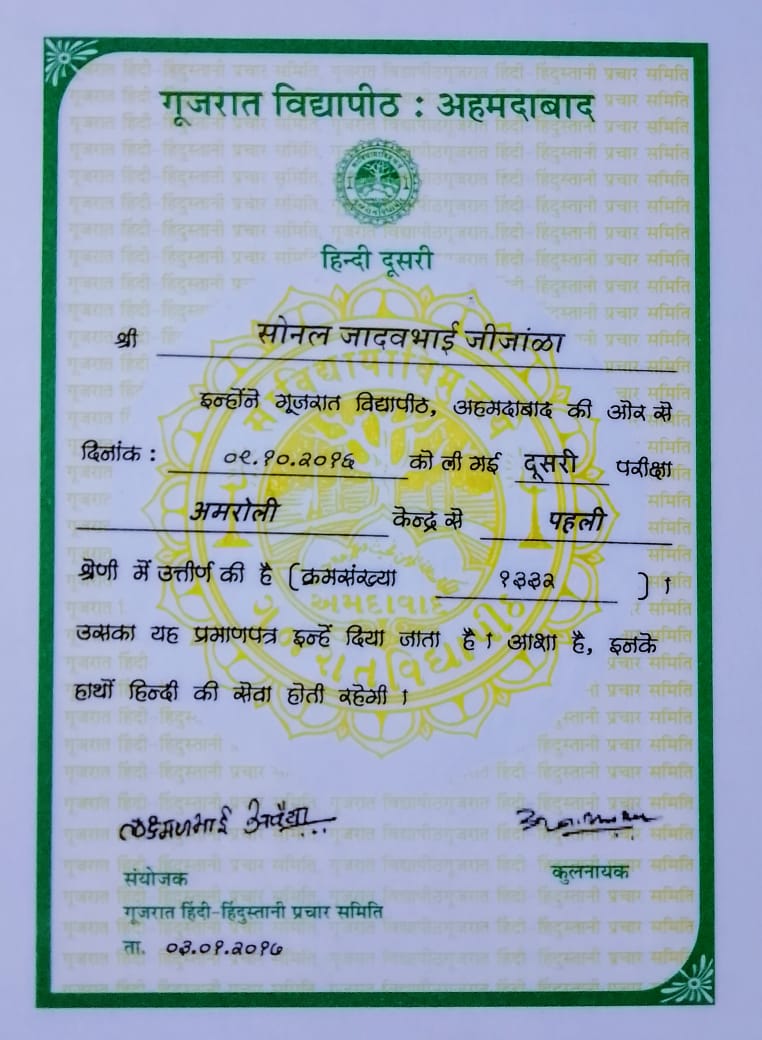 गूजरात विद्यापीठ : अहमदाबाद
हिन्दी दूसरी
श्री सोनल जादवभाई जीजांळा
इन्होंने गूजरात विद्यापीठ, अहमदाबाद की ओर से
दिनांक : ०९.१०.२०१६ को ली गई दूसरी परीक्षा
अमरोली केन्द्र से पहली
श्रेणी में उत्तीर्ण की है (क्रमसंख्या १३३२ ) ।
उसका यह प्रमाणपत्र इन्हें दिया जाता है । आशा है, इनके
हाथों हिन्दी की सेवा होती रहेगी ।
संयोजक
कुलनायक
गूजरात हिंदी-हिंदुस्तानी प्रचार समिति
ता. ०३.०१.२०१७